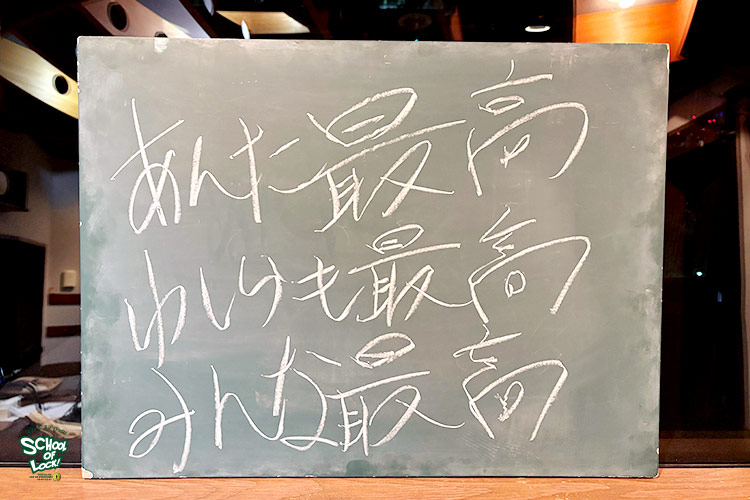 あんた最高
わしらも最高
みんな最高
SCHOOL
OF
LOCK!